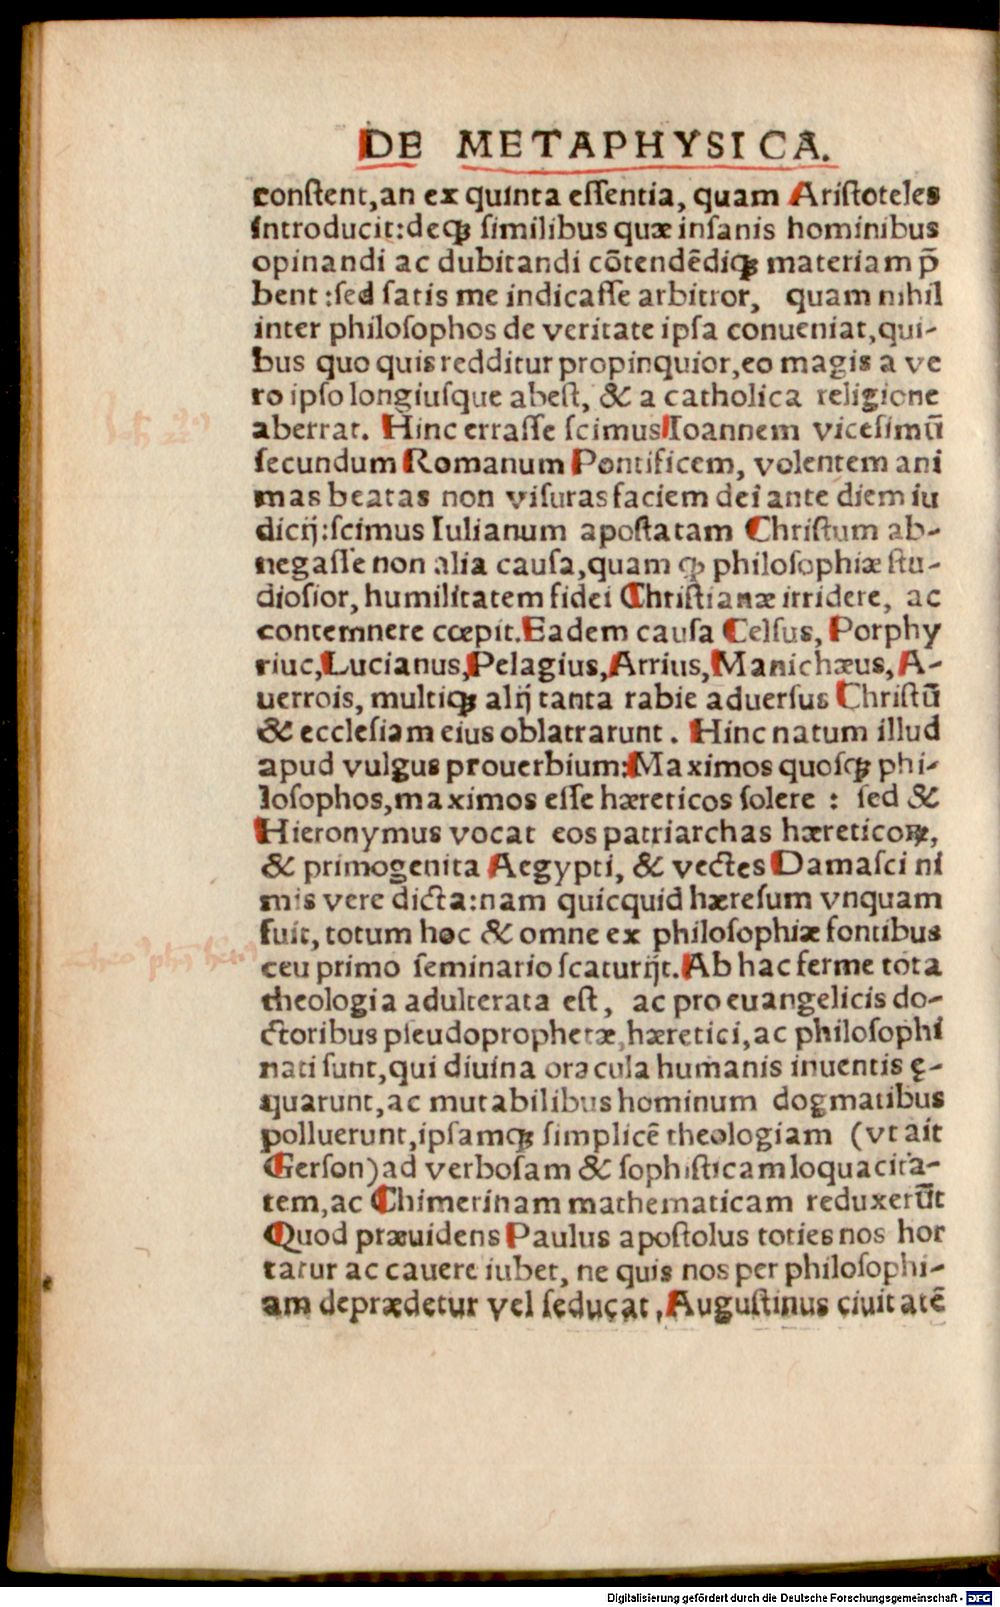 DE METAPHYSICA.
conſtent,an ex quinta eſſentia, quam Ariſtoteles
introducit:deqꝫ ſimilibus quæ inſanis hominibus
opinandi ac dubitandi cōtendēdiqꝫ materiam p̄
bent :ſed ſatis me indicaſſe arbitror, quam nihil
inter philoſophos de veritate ipſa conueniat,qui-
bus quo quis redditur propinquior,eo magis a ve
ro ipſo longiuſque abeſt, & a catholica religione
aberrat. Hinc erraſſe ſcimus Ioannem viceſimū
ſecundum Romanum Pontificem, volentem ani
mas beatas non viſuras faciem dei ante diem iu
dicij:ſcimus Iulianum apoſtatam Chriſtum ab-
negaſſe non alia cauſa,quam ꝙ philoſophiæ ſtu-
dioſior, humilitatem fidei Chriſtianæ irridere, ac
contemnere cœpit.Eadem cauſa Celſus, Porphy
riuc,Lucianus,Pelagius,Arrius,Manichæus,A-
uerrois, multiqꝫ alij tanta rabie aduerſus Chriſtū
& eccleſiam eius oblatrarunt. Hinc natum illud
apud vulgus prouerbium:Maximos quoſqꝫ phi-
loſophos,maximos eſſe hæreticos ſolere : ſed &
Hieronymus vocat eos patriarchas hæreticoꝝ,
& primogenita Aegypti, & vectes Damaſci ni
mis vere dicta:nam quicquid hæreſum vnquam
fuit, totum hoc & omne ex philoſophiæ fontibus
ceu primo ſeminario ſcaturijt.Ab hac ferme tota
theologia adulterata eſt, ac pro euangelicis do-
ctoribus pſeudoprophetæ,hæretici,ac philoſophi
nati ſunt,qui diuina oracula humanis inuentis ę-
quarunt,ac mutabilibus hominum dogmatibus
polluerunt,ipſamqꝫ ſimplicē theologiam (vt ait
Gerſon)ad verboſam & ſophiſticam loquacita-
tem,ac Chimerinam mathematicam reduxerūt
Quod præuidens Paulus apoſtolus toties nos hor
tatur ac cauere iubet, ne quis nos per philoſophi-
am deprædetur vel ſeducat, Auguſtinus ciuitatē
Joh 22
Digitalisierung gefördert durch die Deutsche Forschungsgemeinschaft - DFG